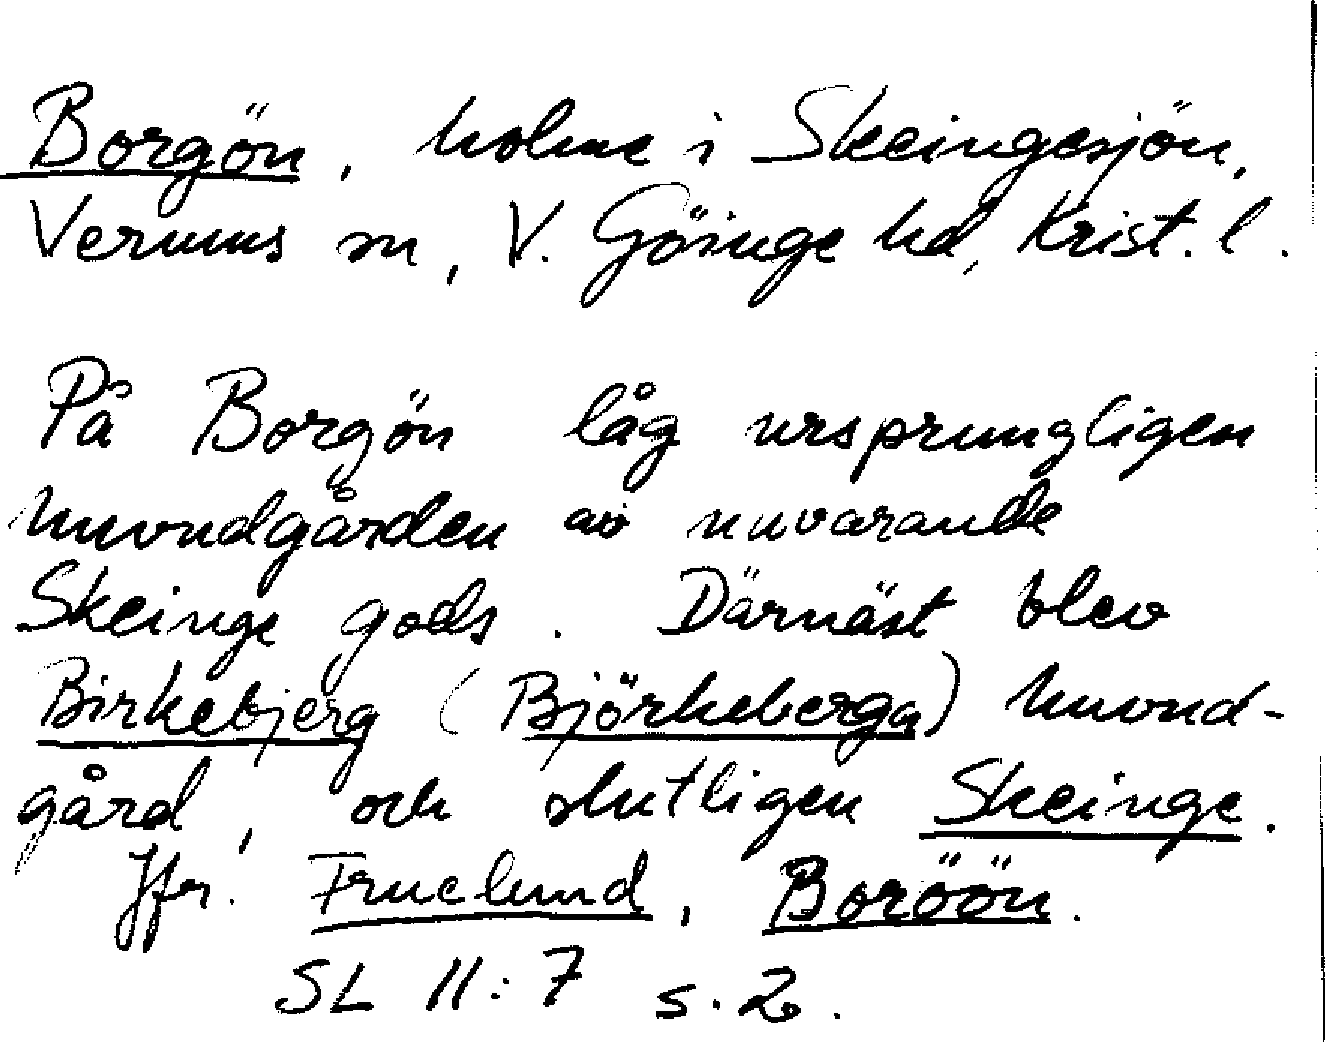 Borgön, holme i Skeingesjön,
Verums sn, V. Göinge hd, Krist. l.
På Borgön låg ursprungligen
huvudgården av nuvarande
Skeinge gods. Därnäst blev
Birkebjerg (Björkeberga) huvud-
gård, och slutligen Skeinge.
Jfr. Fruelund, Boröön.
SL 11:7 s. 2.